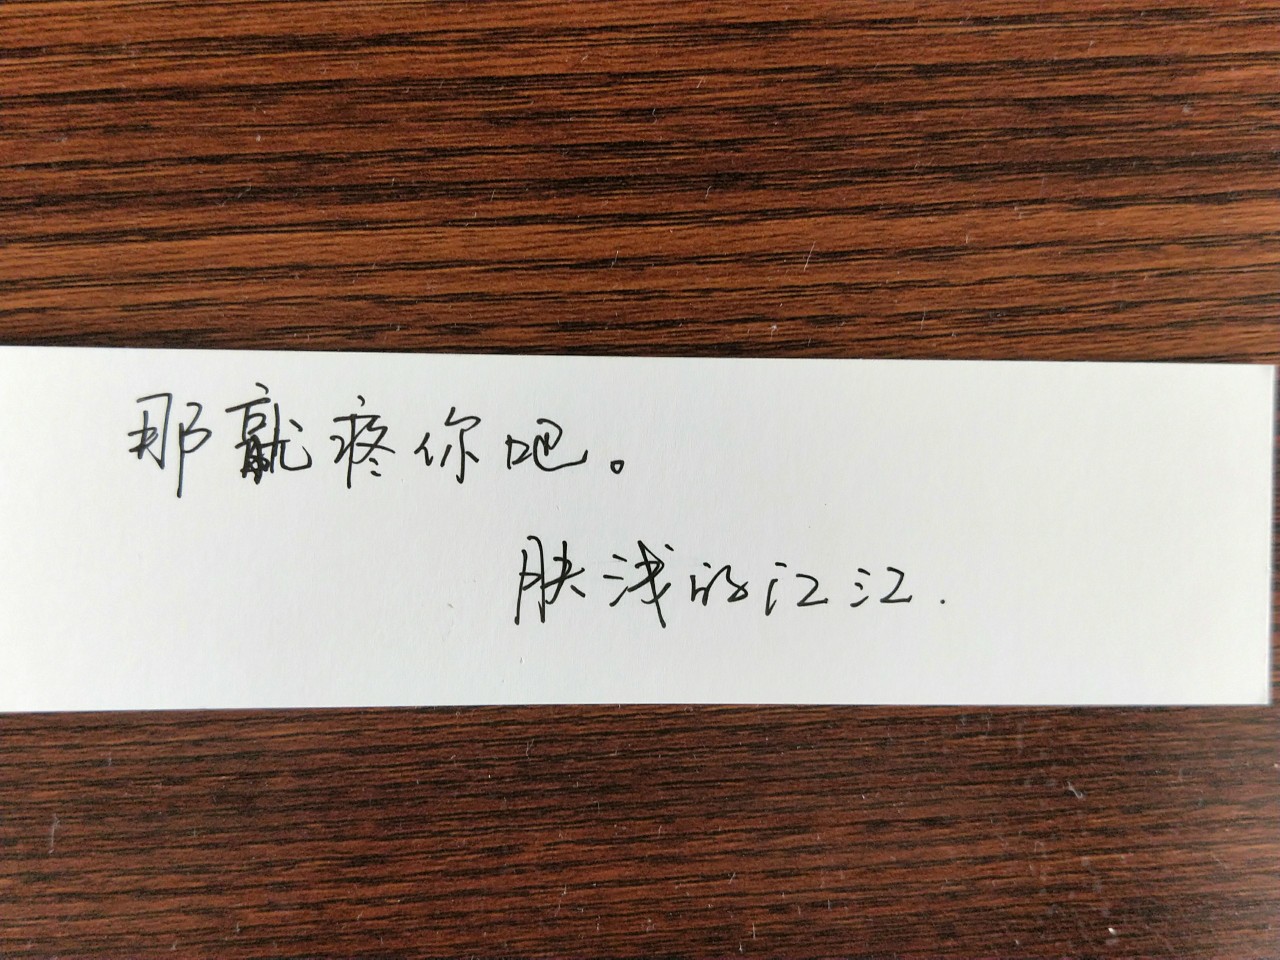 那就疼你吧。
肤浅的江江.